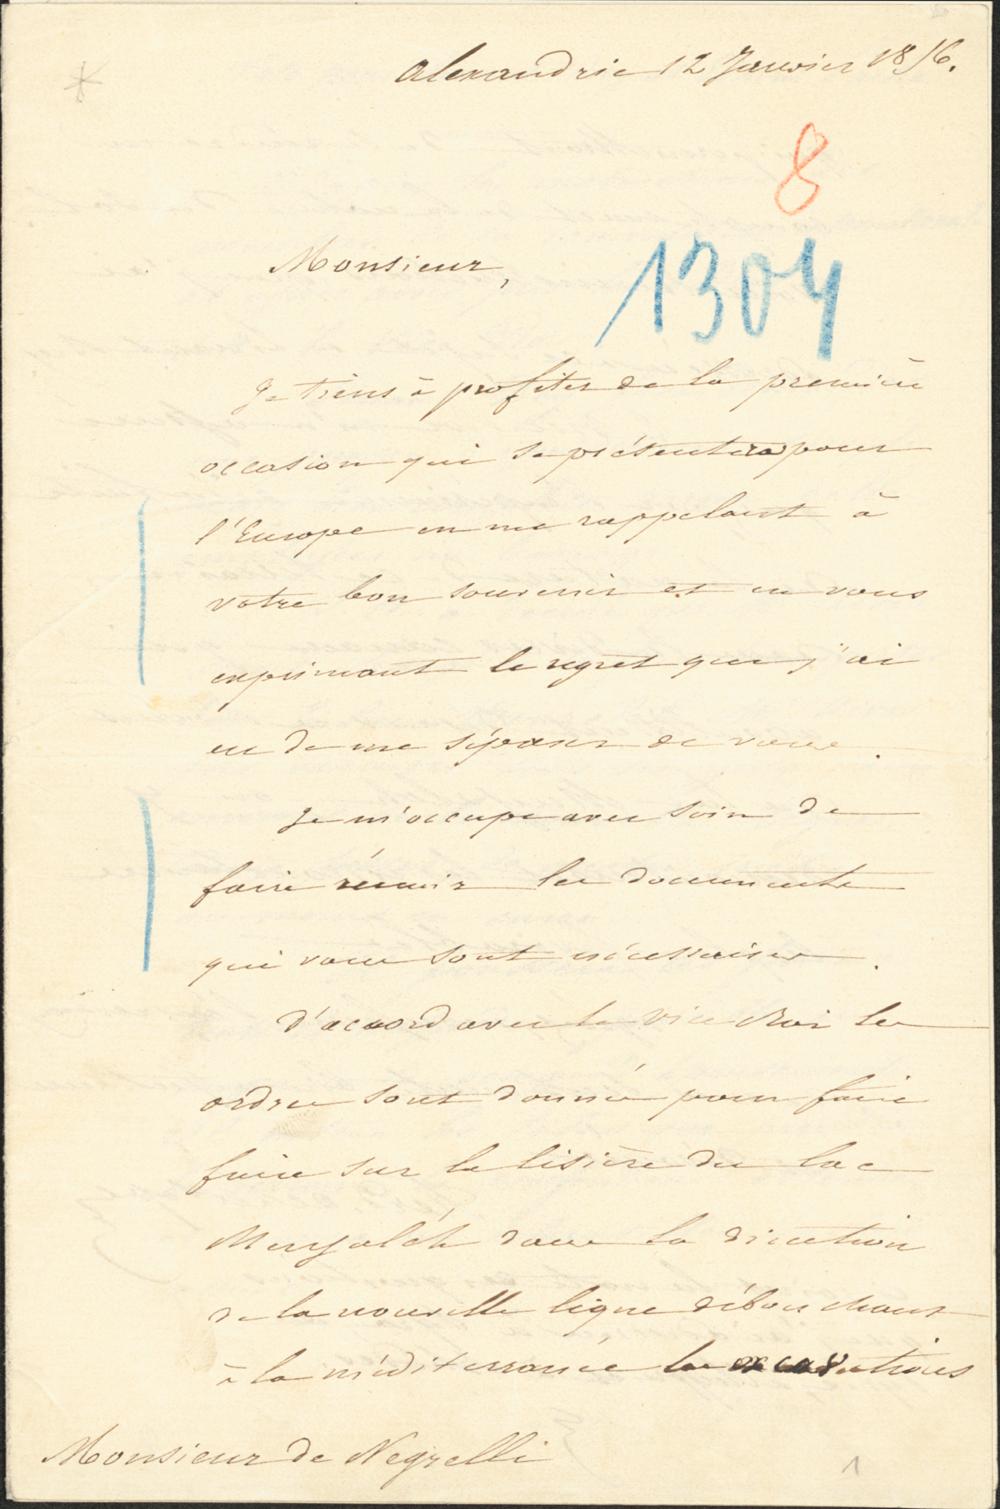 Alexandrie 12 Janvier 1856.
8
1304
Monsieur,
Je tiens à profiter de la première
occasion qui se présentera pour
l'Europe en me rappelant à
votre bon souvenir et en vous
exprimant le regret que j'ai
eu de me séparer de vous.
Je m'occupe avec soin de
faire réunir les documents
qui vous sont nécessaires.
D'accord avec le Vice Roi les
ordres sont donnés pour faire
faire sur la lisière du lac
Menzaléh dans la direction
de la nouvelle ligne débouchant
à la méditerranée les excavations
Monsieur de Negrelli
1